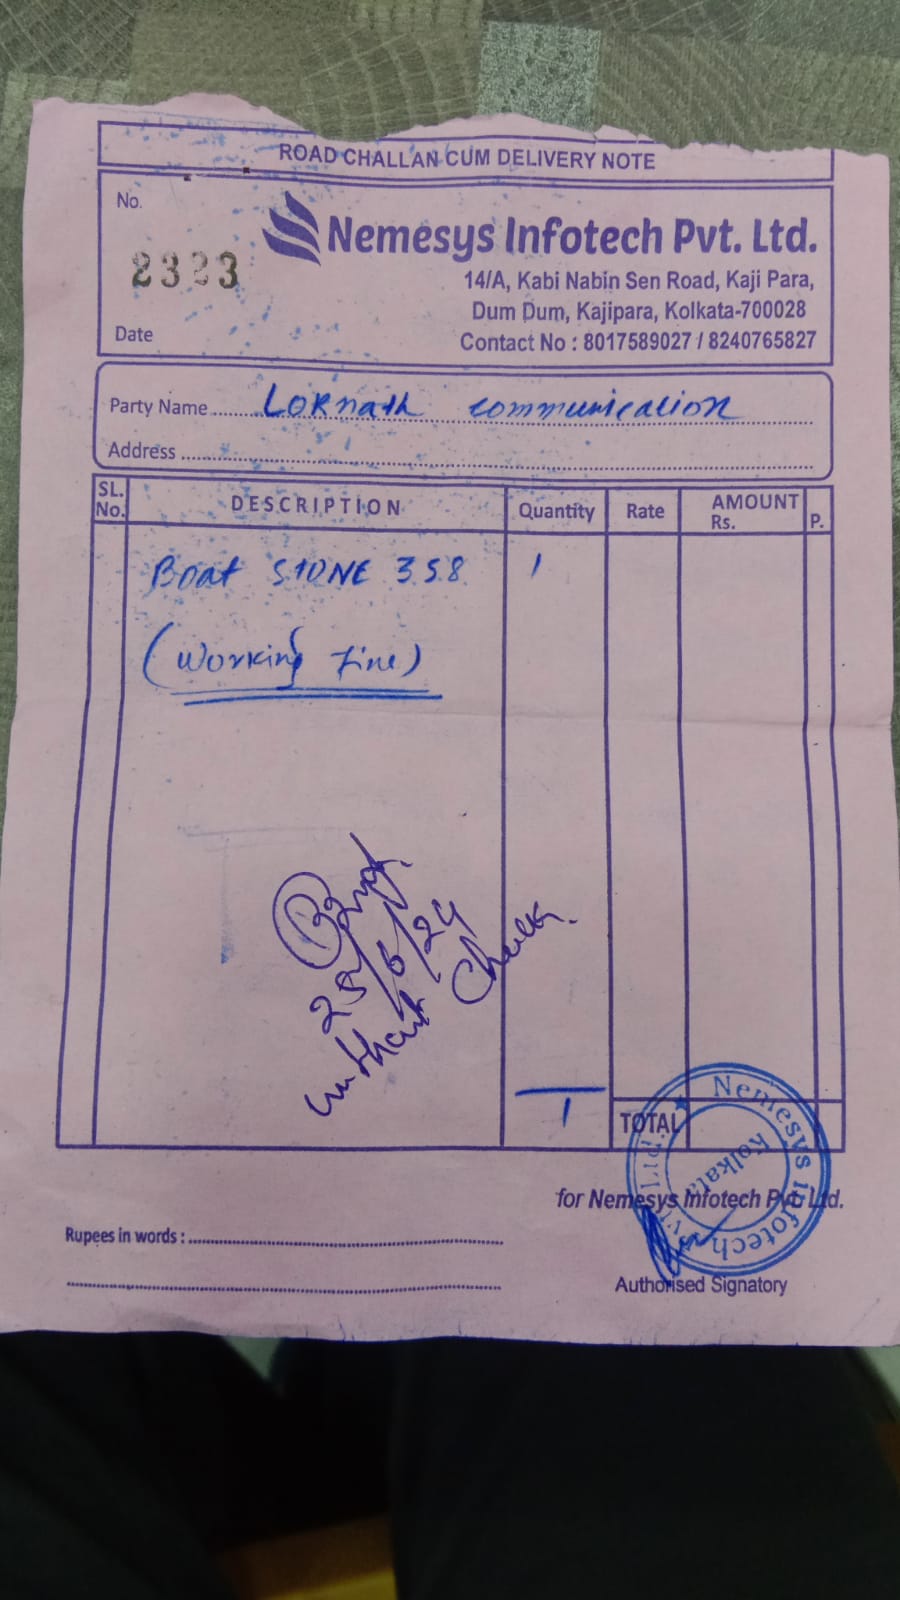 ROAD CHALLAN CUM DELIVERY NOTE
No.
2323
Nemesys Infotech Pvt. Ltd.
14/A, Kabi Nabin Sen Road, Kaji Para,
Dum Dum, Kajipara, Kolkata-700028
Contact No : 8017589027 / 8240765827
Date
Party Name LOKnath communication
Address
SL. No. DESCRIPTION Quantity Rate AMOUNT Rs. P.
Boat STONE 358 1
(Working Fine)
25/6/24
without Check
1
TOTAL
for Nemesys Infotech Pvt. Ltd.
Nemesys Infotech Pvt. Ltd.
Kolkata
Rupees in words :
Authorised Signatory